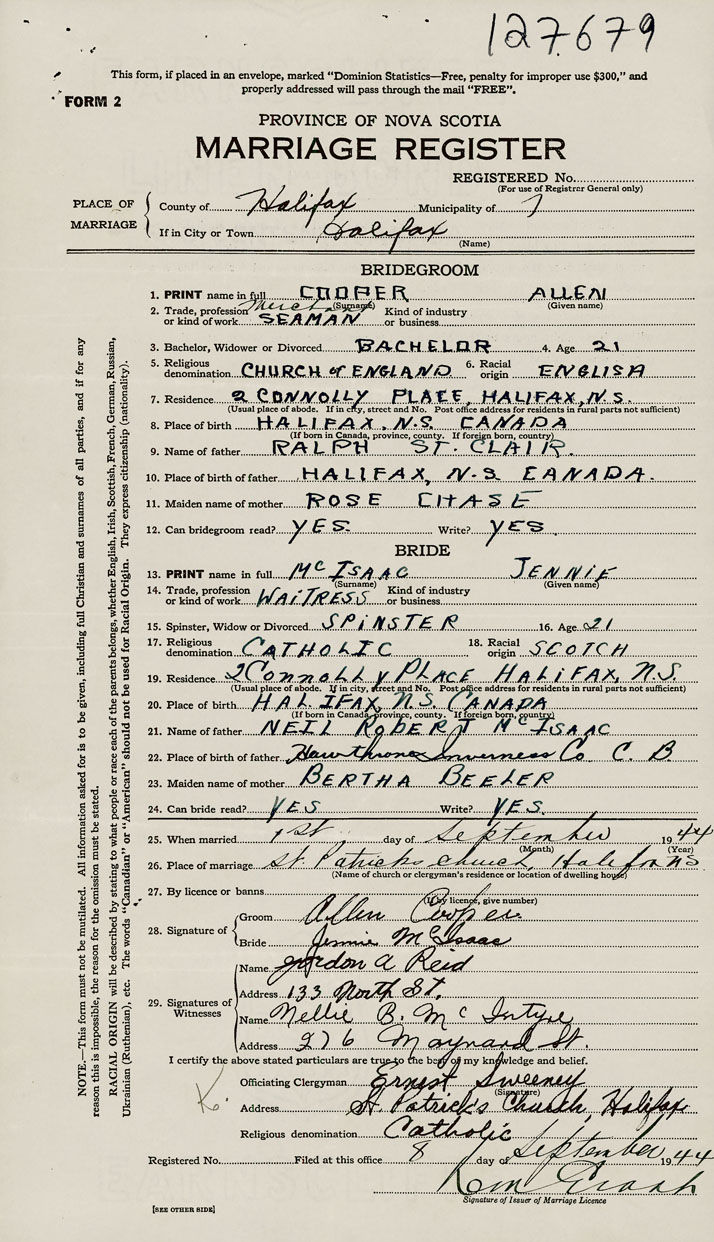 127679
This form, if placed in an envelope, marked "Dominion Statistics—Free, penalty for improper use $300," and
properly addressed will pass through the mail "FREE".
FORM 2
PROVINCE OF NOVA SCOTIA
MARRIAGE REGISTER
REGISTERED No.
(For use of Registrar General only)
PLACE OF MARRIAGE
County of Halifax Municipality of
If in City or Town Halifax
(Name)
BRIDEGROOM
1. PRINT name in full COOPER ALLEN
(Surname) (Given name)
2. Trade, profession or kind of work Merch SEAMAN Kind of industry or business
3. Bachelor, Widower or Divorced BACHELOR 4. Age 21
5. Religious denomination CHURCH of ENGLAND 6. Racial origin ENGLISH
7. Residence 2 CONNOLLY PLACE, HALIFAX, N.S.
(Usual place of abode. If in city, street and No. Post office address for residents in rural parts not sufficient)
8. Place of birth HALIFAX, N.S. CANADA
(If born in Canada, province, county. If foreign born, country)
9. Name of father RALPH ST. CLAIR.
10. Place of birth of father HALIFAX, N.S CANADA.
11. Maiden name of mother ROSE CHASE
12. Can bridegroom read? YES. Write? YES.
BRIDE
13. PRINT name in full McISAAC JENNIE
(Surname) (Given name)
14. Trade, profession or kind of work WAITRESS Kind of industry or business
15. Spinster, Widow or Divorced SPINSTER 16. Age 21
17. Religious denomination CATHOLIC 18. Racial origin SCOTCH
19. Residence 2 Connolly PLACE HALIFAX, N.S.
(Usual place of abode. If in city, street and No. Post office address for residents in rural parts not sufficient)
20. Place of birth HALIFAX, N.S. CANADA
(If born in Canada, province, county. If foreign born, country)
21. Name of father NEIL ROBERT McISAAC
22. Place of birth of father Inverness Co. C. B.
23. Maiden name of mother BERTHA BEELER
24. Can bride read? YES Write? YES.
25. When married 1st day of September 1944
(Month) (Year)
26. Place of marriage St Patricks church, Halifax NS
(Name of church or clergyman's residence or location of dwelling house)
27. By licence or banns
(If by licence, give number)
28. Signature of
Groom Allen Cooper
Bride Jennie McIsaac
29. Signatures of Witnesses
Name Gordon A Reid
Address 133 North St.
Name Nellie B. McIntyre
Address 276 Maynard St.
I certify the above stated particulars are true to the best of my knowledge and belief.
Officiating Clergyman Ernest Sweeney
(Signature)
Address St. Patricks Church, Halifax
Religious denomination Catholic
Registered No. Filed at this office 8 day of September 1944
Signature of Issuer of Marriage Licence
[SEE OTHER SIDE]
NOTE.—This form must not be mutilated. All information asked for is to be given, including full Christian and surnames of all parties, and if for any
reason this is impossible, the reason for the omission must be stated.
RACIAL ORIGIN will be described by stating to what people or race each of the parents belongs, whether English, Irish, Scottish, French, German, Russian,
Ukrainian (Ruthenian), etc. The words "Canadian" or "American" should not be used for Racial Origin. They express citizenship (nationality).